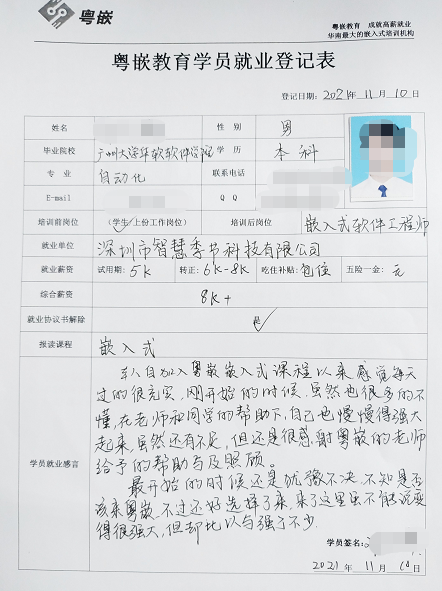 粤嵌
粤嵌教育 成就高薪就业
华南最大的嵌入式培训机构
粤嵌教育学员就业登记表
登记日期：2021年11月10日
姓名 性别 男
毕业院校 广州大学华软软件学院 学历 本科
专业 自动化 联系电话
E-mail QQ
培训前岗位 （学生/上份工作岗位） 培训后岗位 嵌入式软件工程师
就业单位 深圳市智慧季节科技有限公司
就业薪资 试用期：5K 转正：6K-8K 吃住补贴：包住 五险一金：元
综合薪资 8K+
就业协议书解除 是
报读课程 嵌入式
学员就业感言
自加入粤嵌嵌入式课程以来感觉每天
过的很充实，刚开始的时候，虽然也很多的不
懂，在老师和同学的帮助下，自己也慢慢得强大
起来，虽然还有不足，但还是很感谢粤嵌的老师
给予的帮助与及照顾。
最开始的时候还是犹豫不决，不知是否
该来粤嵌，不过还好选择了来，来了这里虽不能说变
得很强大，但却比以与强了不少
学员签名：
2021年11月10日